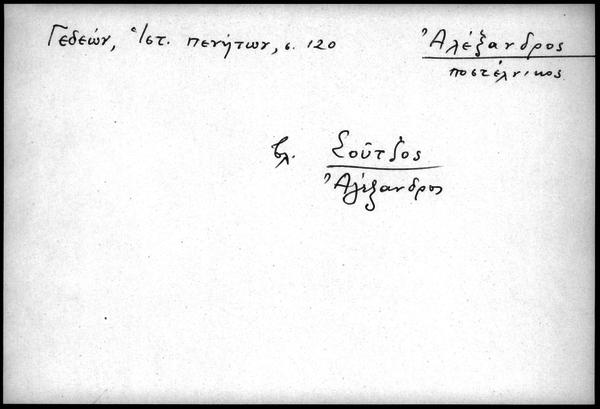 Γεδεών, Ἱστ. πενήτων, σ. 120
Ἀλέξανδρος
ποστέλνικος
βλ. Σοῦτζος
Ἀλέξανδρος